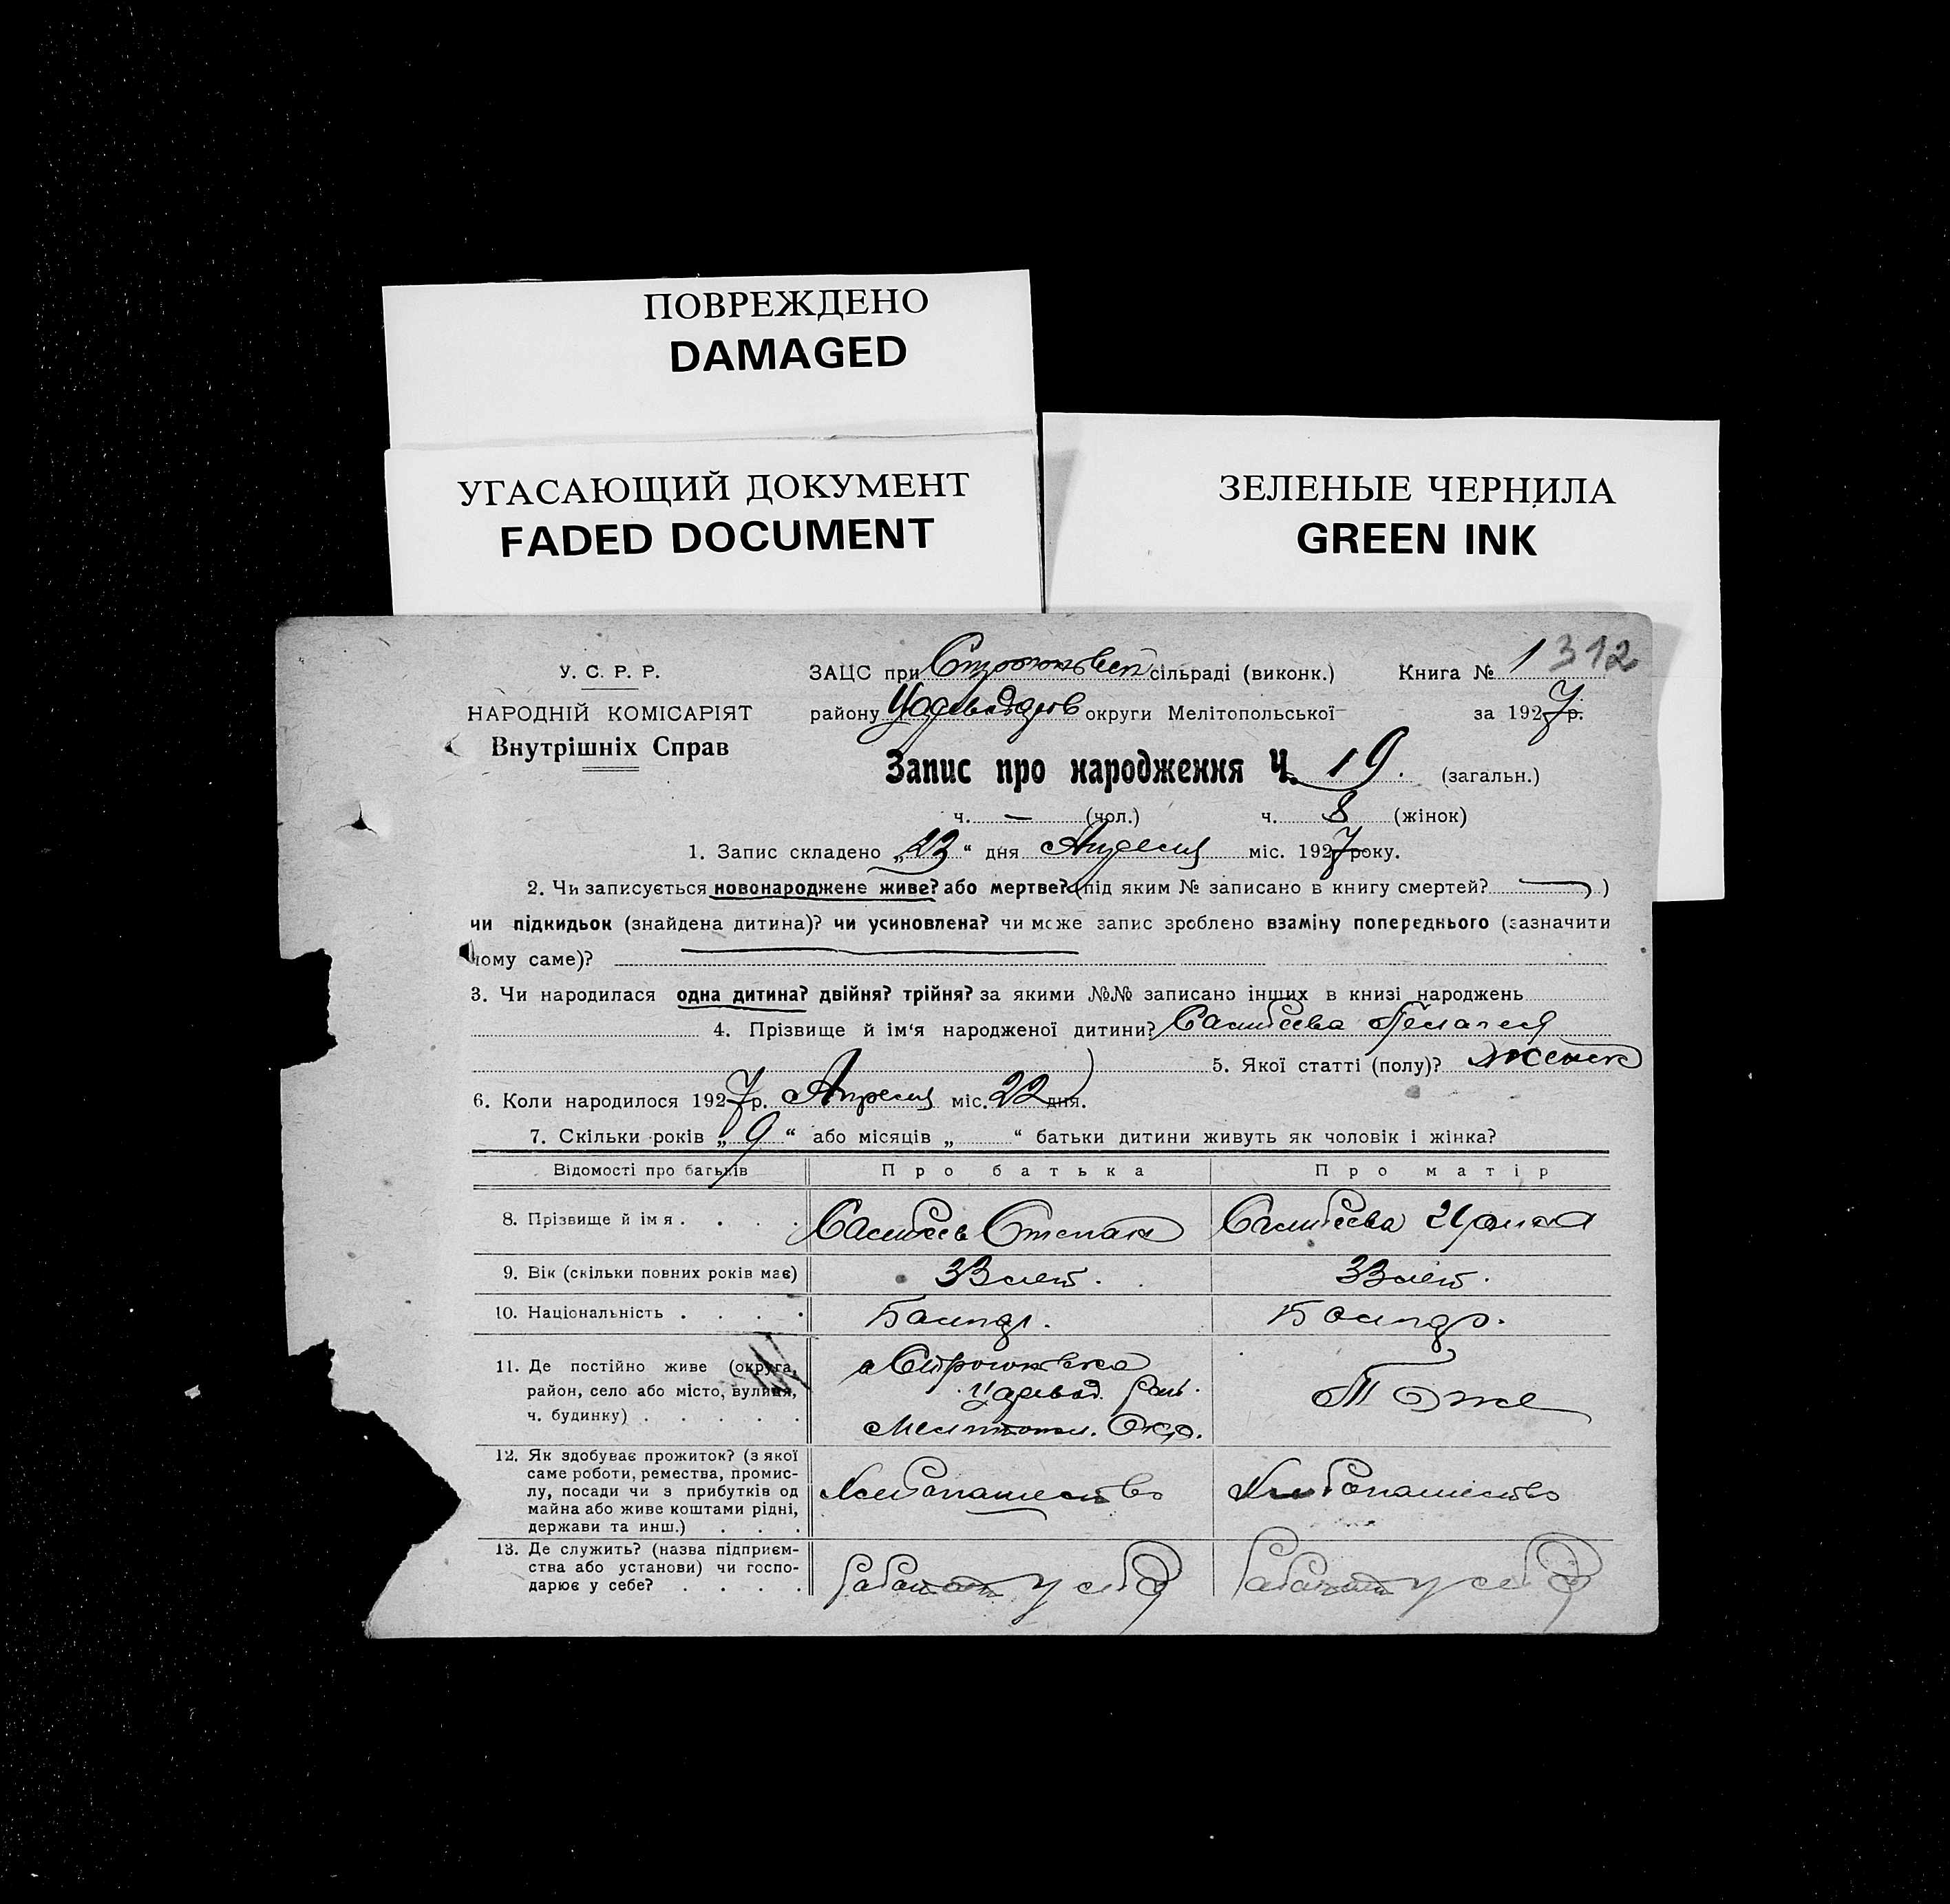 ПОВРЕЖДЕНО
DAMAGED
УГАСАЮЩИЙ ДОКУМЕНТ
FADED DOCUMENT
ЗЕЛЕНЫЕ ЧЕРНИЛА
GREEN INK
312
У. С. Р. Р.
НАРОДНІЙ КОМІСАРІЯТ
Внутрішніх Справ
ЗАЦС при сільраді (виконк.) Книга № 1
району округи Мелітопольської за 1927 р.
Запис про народження Ч. 19. (загальн.)
ч. — (чол.) ч. 8 (жінок)
1. Запис складено „23“ дня Апреля міс. 1927 року.
2. Чи записується новонароджене живе? або мертве? (під яким № записано в книгу смертей? — )
чи підкидьок (знайдена дитина)? чи усиновлена? чи може запис зроблено взаміну попереднього (зазначити
чому саме)?
3. Чи народилася одна дитина? двійня? трійня? за якими №№ записано інших в книзі народжень
4. Прізвище й ім‘я народженої дитини? Пелагея
5. Якої статті (полу)? Женск
6. Коли народилося 1927 р. Апреля міс. 22 дня.
7. Скільки років „9“ або місяців „ “ батьки дитини живуть як чоловік і жінка?
Відомості про батьків Про батька Про матір
8. Прізвище й імя . . . . Степан
9. Вік (скільки повних років має) 33 лет. 33 лет.
10. Національність . . . . Болгар. Болгар.
11. Де постійно живе (округа,
район, село або місто, вулиця,
ч. будинку) . . . . .
с Строгоновка
Царевод. рай.
Мелитопол. Окр.
То же
12. Як здобуває прожиток? (з якої
саме роботи, ремества, промис-
лу, посади чи з прибутків од
майна або живе коштами рідні,
держави та инш.) . . .
Хлебопашество Хлебопашество
13. Де служить? (назва підприєм-
ства або установи) чи госпо-
дарює у себе? . . . .
Работает у себя Работает у себя